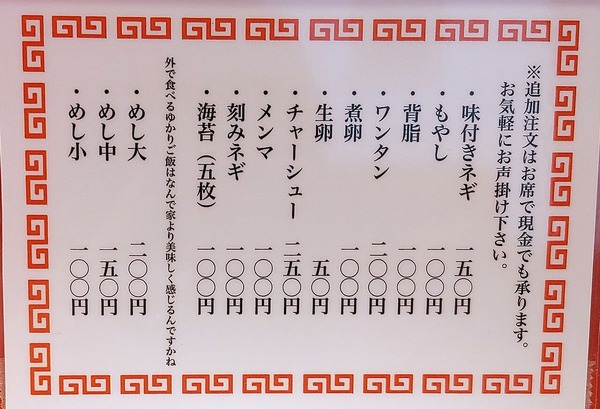 ※追加注文はお席で現金でも承ります。
お気軽にお声掛け下さい。
・味付きネギ 一五〇円
・もやし 一〇〇円
・背脂 一〇〇円
・ワンタン 二〇〇円
・煮卵 一〇〇円
・生卵 五〇円
・チャーシュー 二五〇円
・メンマ 一〇〇円
・刻みネギ 一〇〇円
・海苔（五枚） 一〇〇円
外で食べるゆかりご飯はなんで家より美味しく感じるんですかね
・めし大 二〇〇円
・めし中 一五〇円
・めし小 一〇〇円